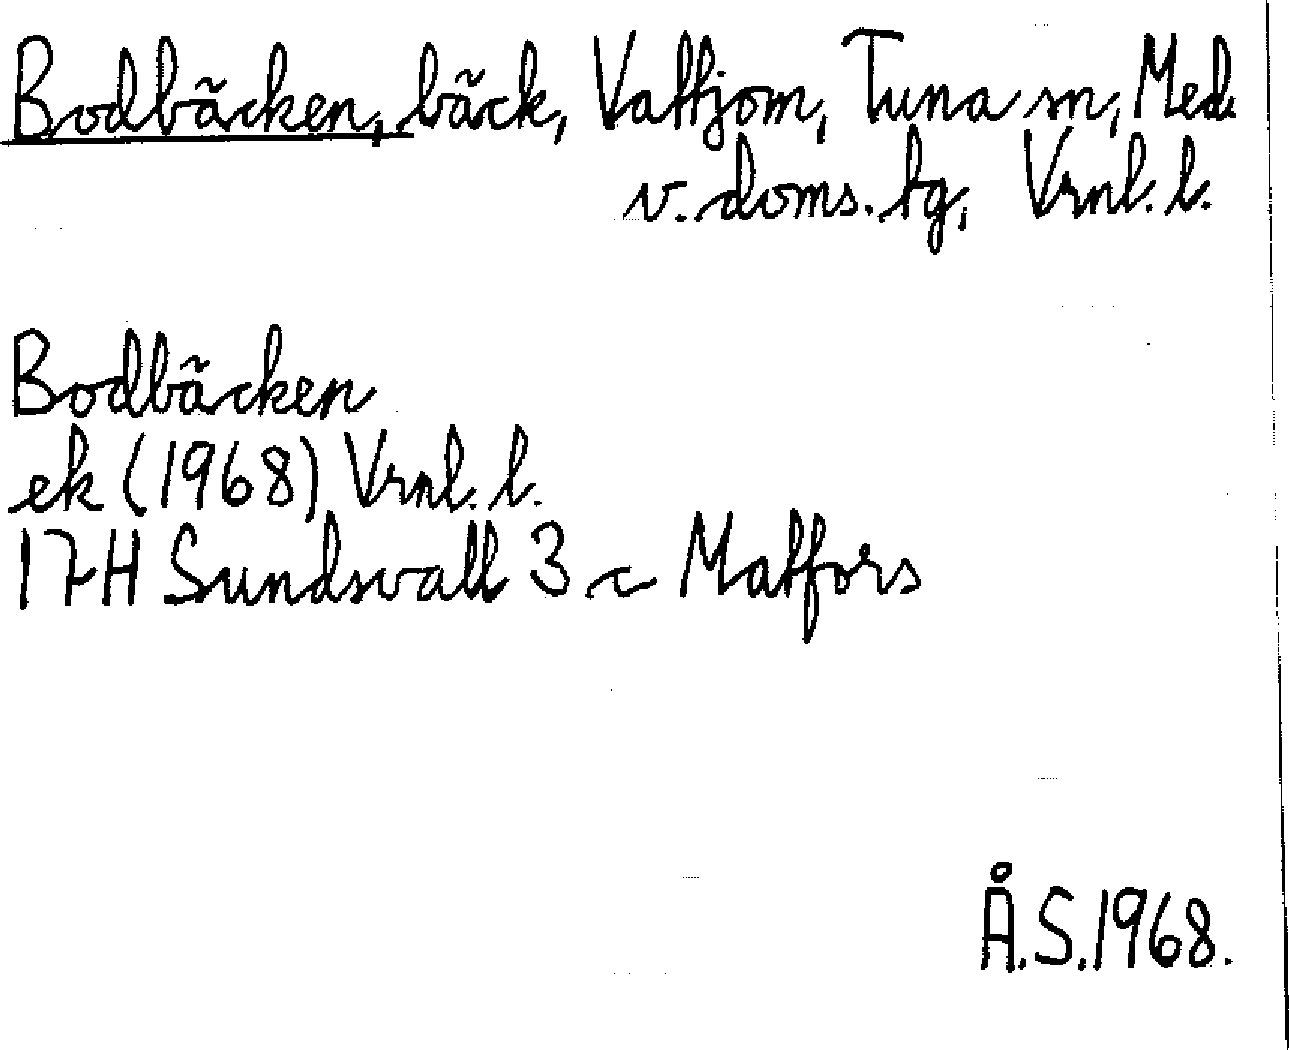 Bodbäcken, bäck, Vattjom, Tuna sn, Med.
v. doms. tg, Vrnl. l.
Bodbäcken
ek (1968) Vrnl. l.
17H Sundsvall 3 c Matfors
Å.S.1968.